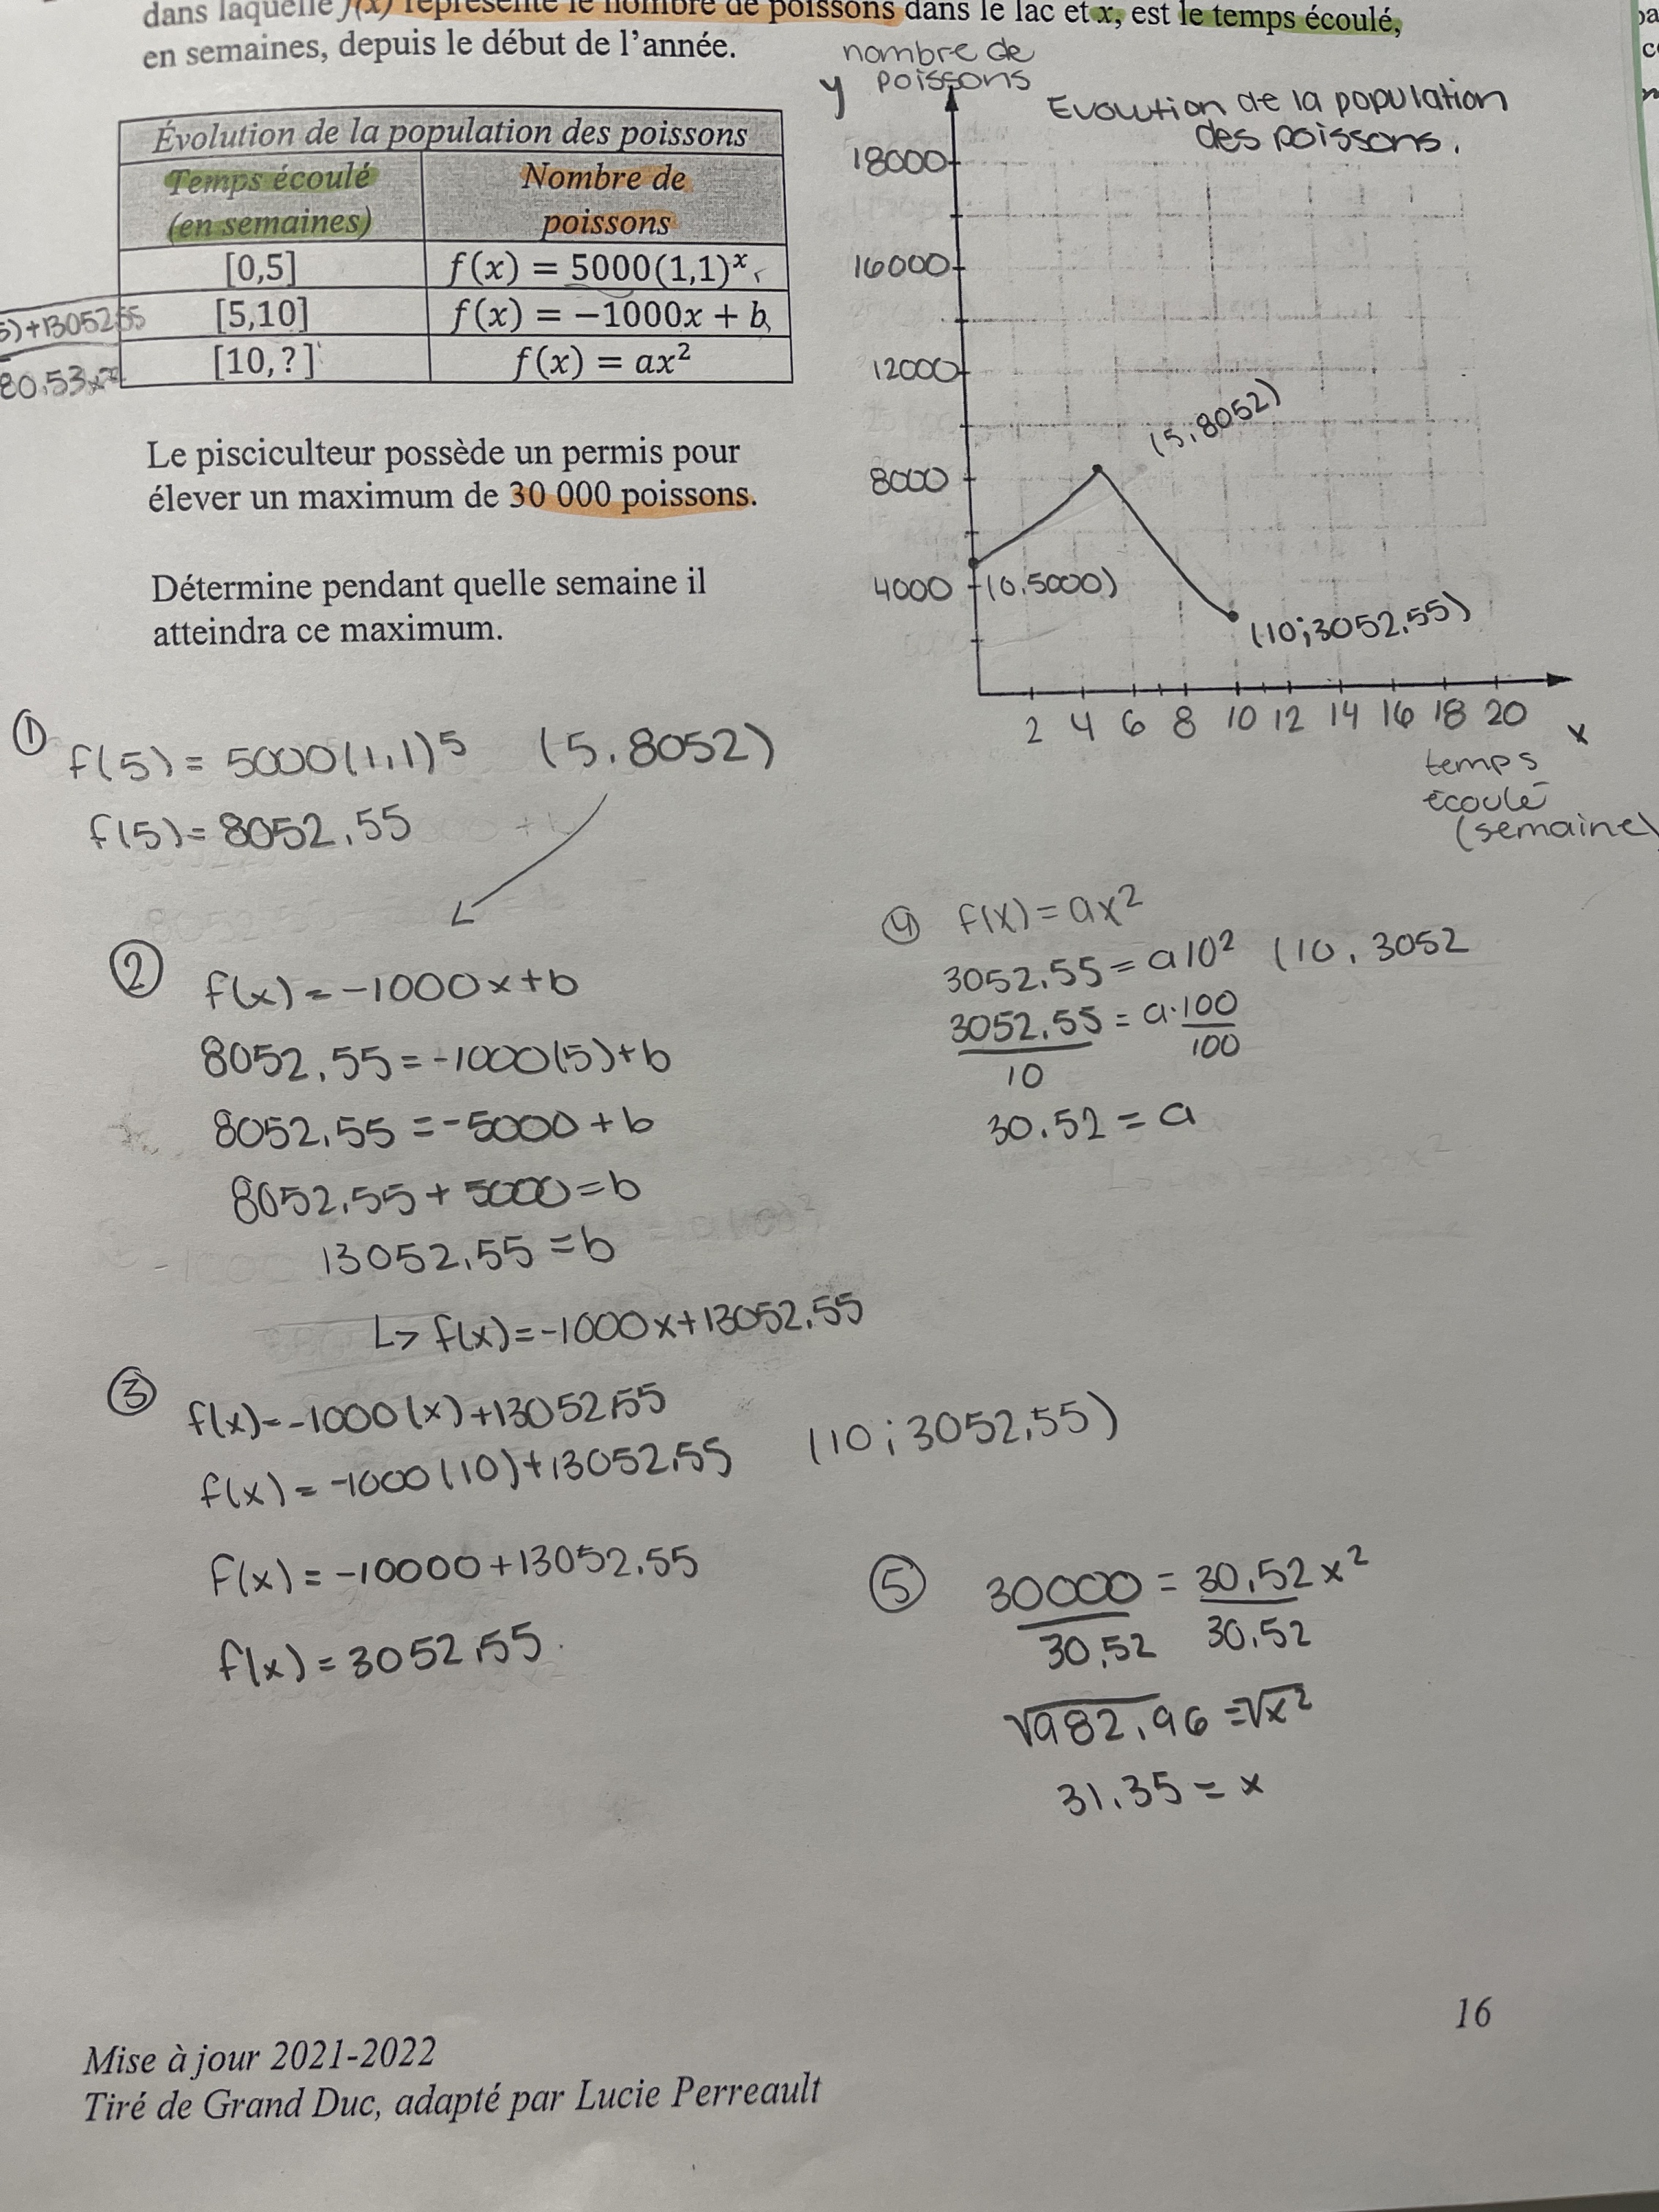 dans laquelle f(x) représente le nombre de poissons dans le lac et x, est le temps écoulé,
en semaines, depuis le début de l'année.
Évolution de la population des poissons
Temps écoulé (en semaines) Nombre de poissons
[0,5] f(x) = 5000(1,1)^x
[5,10] f(x) = −1000x + b
[10,?] f(x) = ax²
5)+13052,55
80,53x²
Le pisciculteur possède un permis pour
élever un maximum de 30 000 poissons.
Détermine pendant quelle semaine il
atteindra ce maximum.
nombre de
poissons
y
Evolution de la population
des poissons.
18000
16000
12000
8000
4000
(5,8052)
(0,5000)
(10;3052,55)
2 4 6 8 10 12 14 16 18 20
x
temps
écoulé
(semaine)
① f(5) = 5000(1,1)⁵ (5,8052)
f(5) = 8052,55
② f(x) = -1000x+b
8052,55 = -1000(5)+b
8052,55 = -5000+b
8052,55 + 5000 = b
13052,55 = b
L> f(x) = -1000x+13052,55
③ f(x) = -1000(x)+13052,55
f(x) = -1000(10)+13052,55 (10;3052,55)
f(x) = -10000+13052,55
f(x) = 3052,55
④ f(x) = ax²
3052,55 = a10² (10,3052
3052,55 = a·100
10 100
30,52 = a
⑤ 30000 = 30,52x²
30,52 30,52
√982,96 = √x²
31,35 = x
16
Mise à jour 2021-2022
Tiré de Grand Duc, adapté par Lucie Perreault